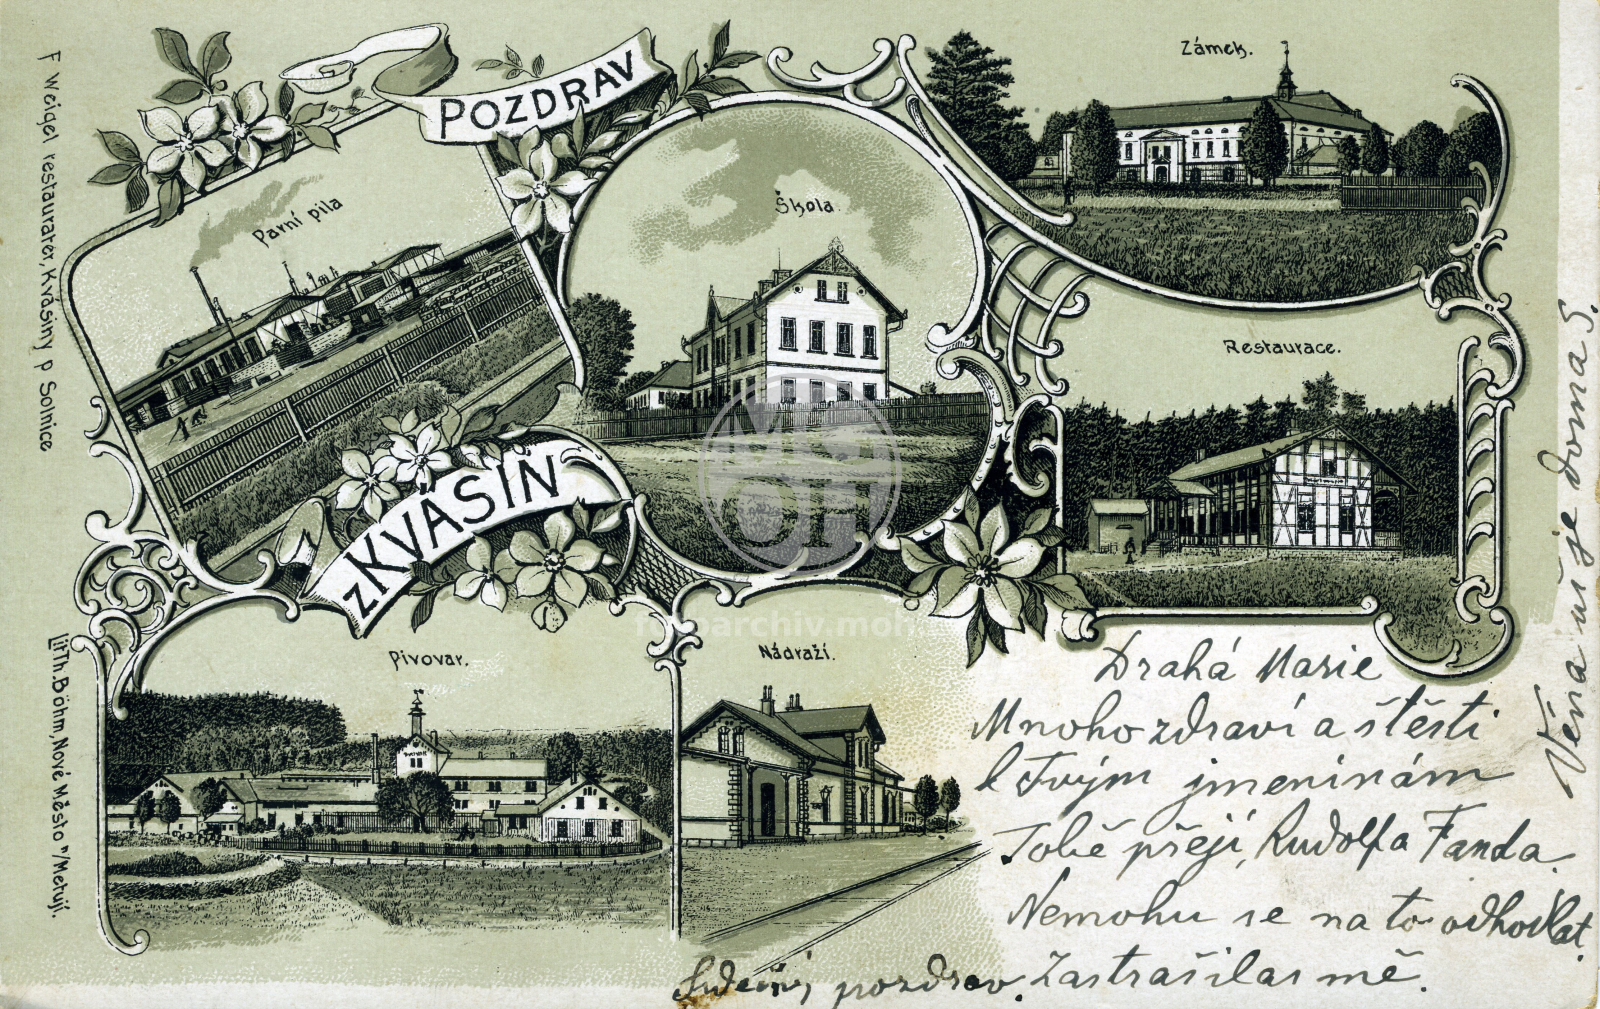 POZDRAV
z KVÁSIN
Parní pila
Škola.
Zámek.
Restaurace.
Pivovar.
Nádraží.
F Weigel restauratér, Kvásiny p Solnice
Lit Th. Böhm, Nové Město n/Metují.
Drahá Marie
Mnoho zdraví a štěstí
k Tvým jmeninám
Tobě přejí, Rudolfa Fanda.
Nemohu se na to odhodlat.
Zastrašilas mě.
Srdečný pozdrav.
Věna už je doma S.